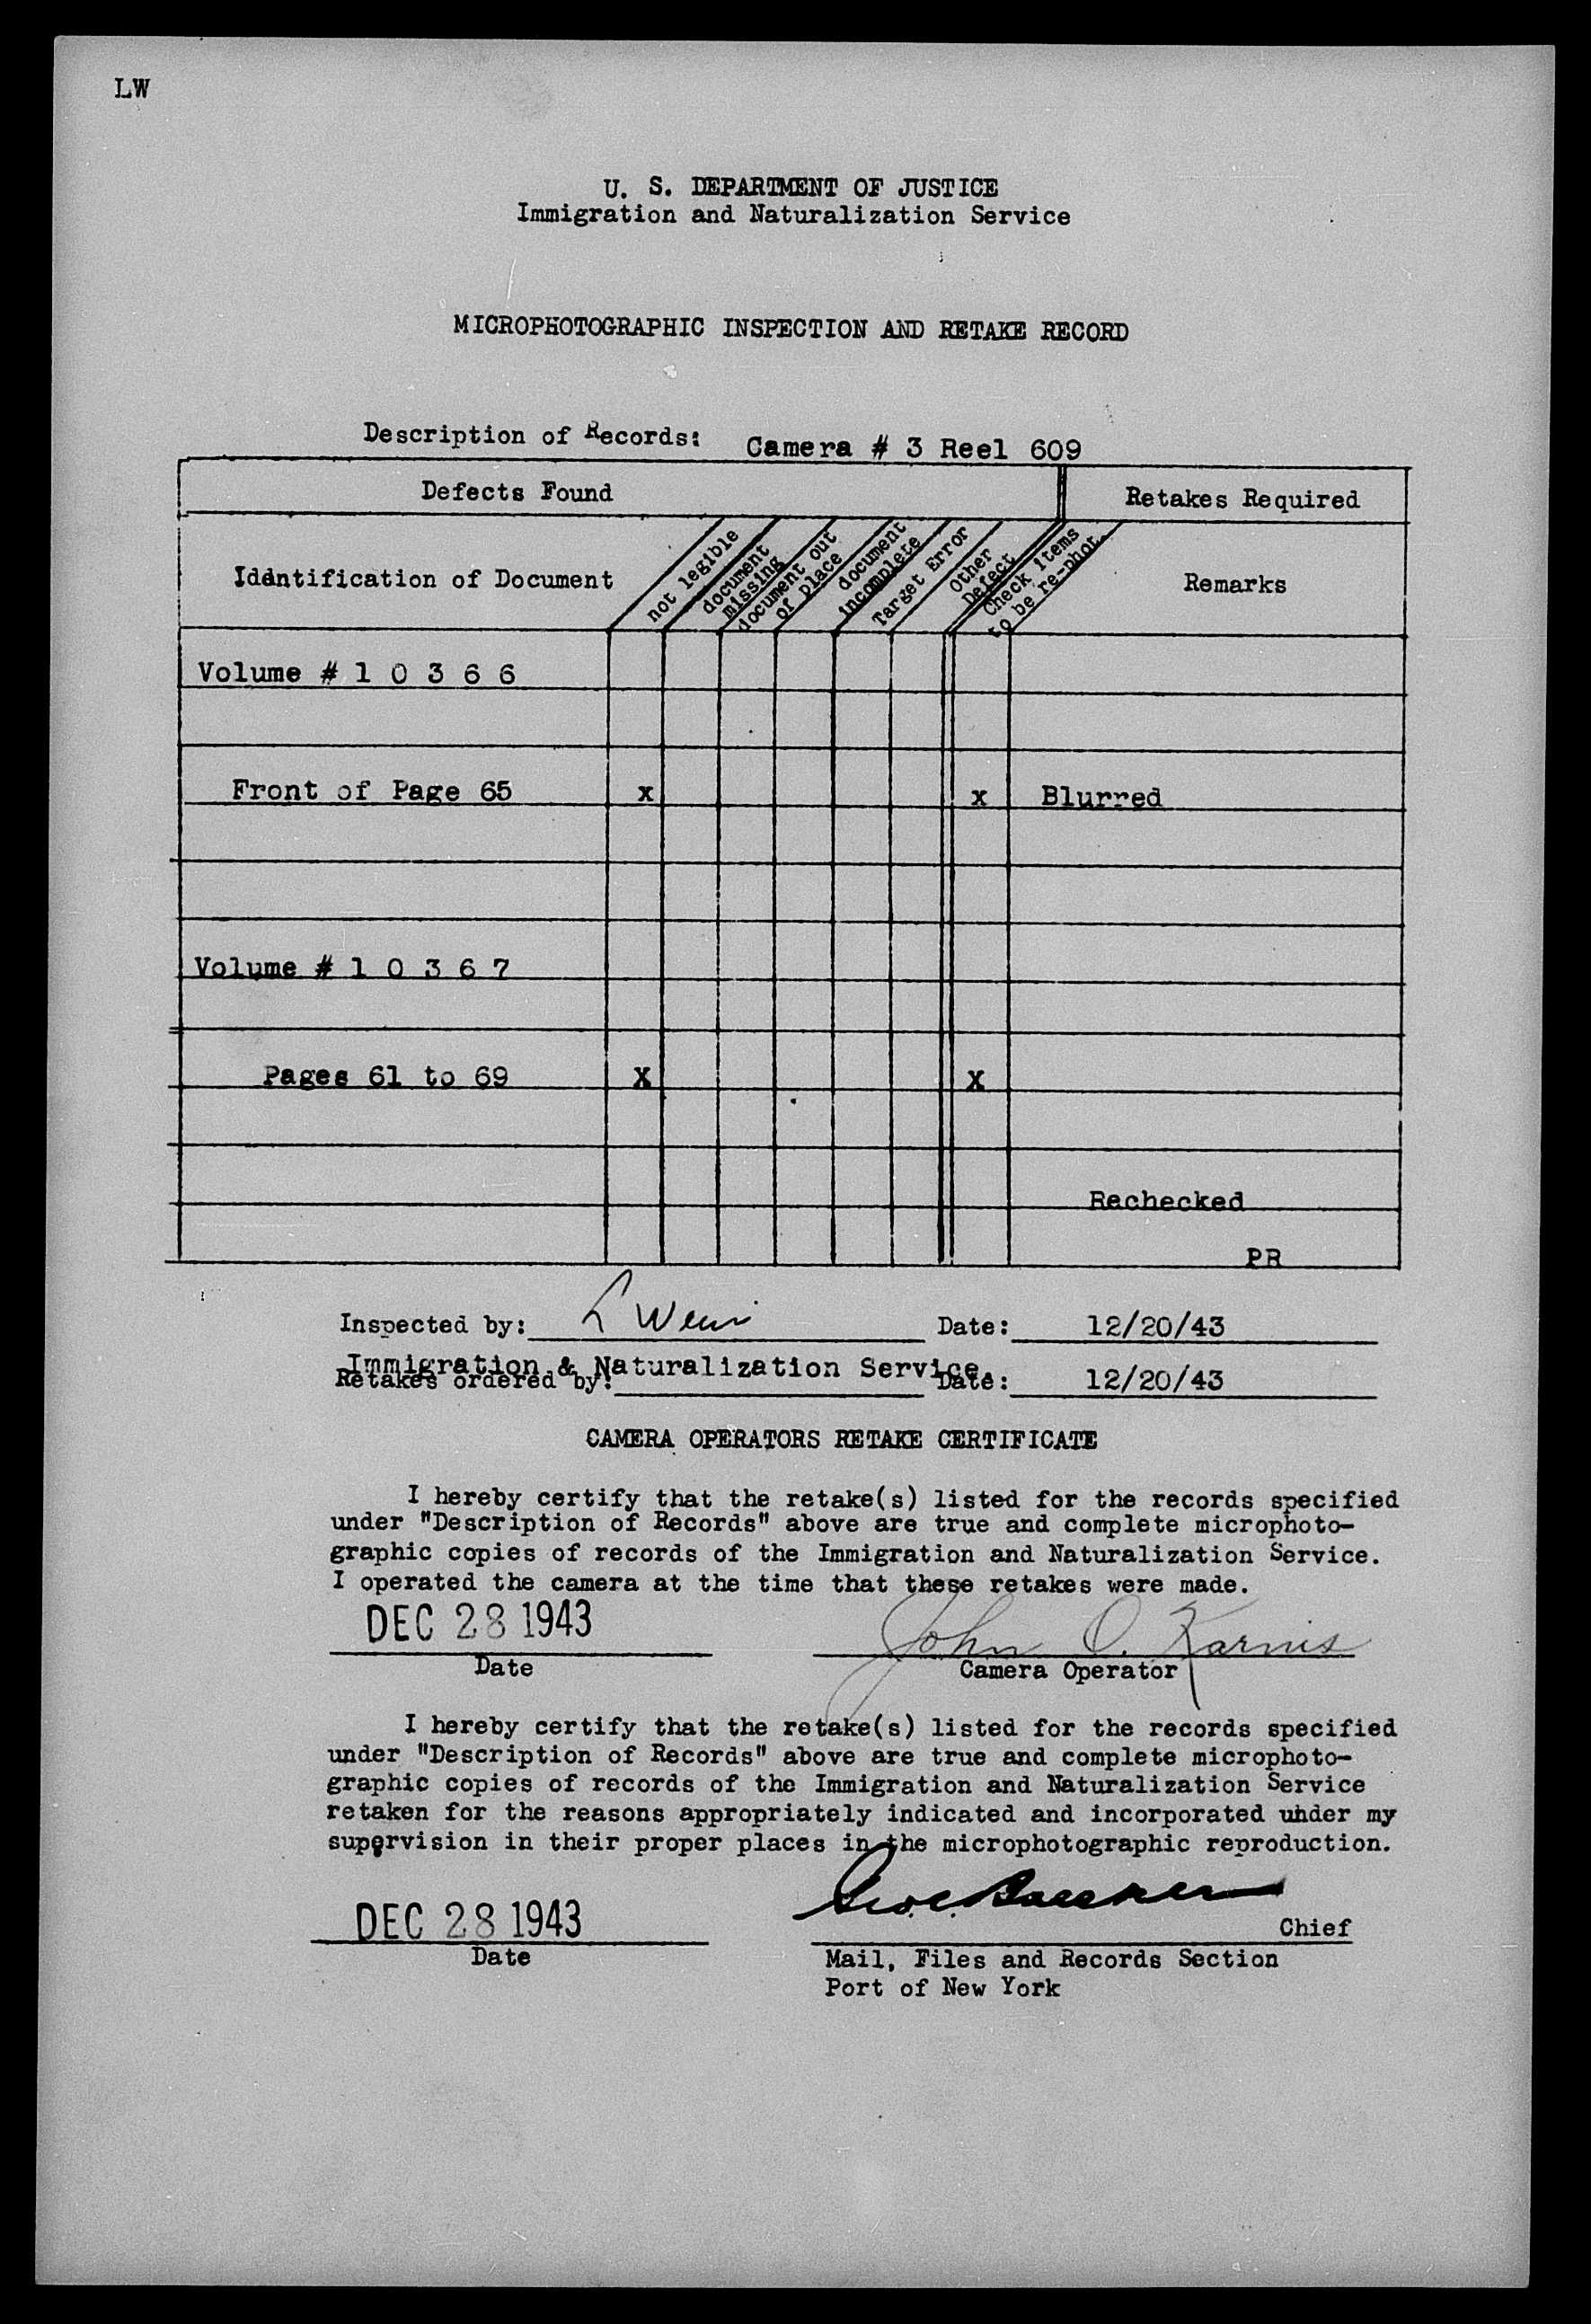 LW
U. S. DEPARTMENT OF JUSTICE
Immigration and Naturalization Service
MICROPHOTOGRAPHIC INSPECTION AND RETAKE RECORD
Description of Records: Camera # 3 Reel 609
Defects Found
Retakes Required
Idantification of Document
not legible
document missing
document out of place
document incomplete
Target Error
Other Defect
Check items to be re-phot.
Remarks
Volume # 1 0 3 6 6
Front of Page 65 x x Blurred
Volume # 1 0 3 6 7
Pages 61 to 69 X X
Rechecked
PR
Inspected by: L Date: 12/20/43
Immigration & Naturalization Service.
Retakes ordered by: Date: 12/20/43
CAMERA OPERATORS RETAKE CERTIFICATE
I hereby certify that the retake(s) listed for the records specified
under "Description of Records" above are true and complete microphoto-
graphic copies of records of the Immigration and Naturalization Service.
I operated the camera at the time that these retakes were made.
DEC 28 1943 John O. Karnis
Date Camera Operator
I hereby certify that the retake(s) listed for the records specified
under "Description of Records" above are true and complete microphoto-
graphic copies of records of the Immigration and Naturalization Service
retaken for the reasons appropriately indicated and incorporated under my
supervision in their proper places in the microphotographic reproduction.
DEC 28 1943 Chief
Date Mail, Files and Records Section
Port of New York